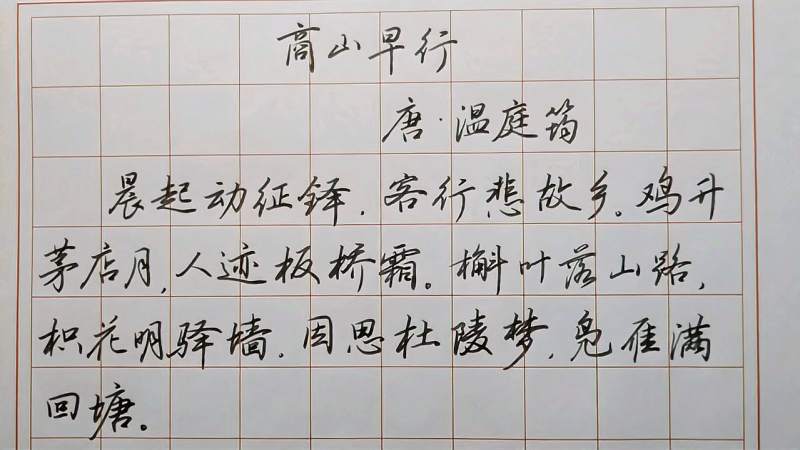 商山早行
唐·温庭筠
晨起动征铎，客行悲故乡。鸡升
茅店月，人迹板桥霜。槲叶落山路，
枳花明驿墙。因思杜陵梦，凫雁满
回塘。